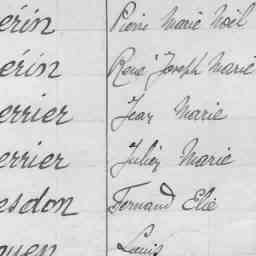 érin Pierre Marie Noël
érin René Joseph Marie
errier Jean Marie
errier Julien Marie
esdon Fernand Elie
guen Louis